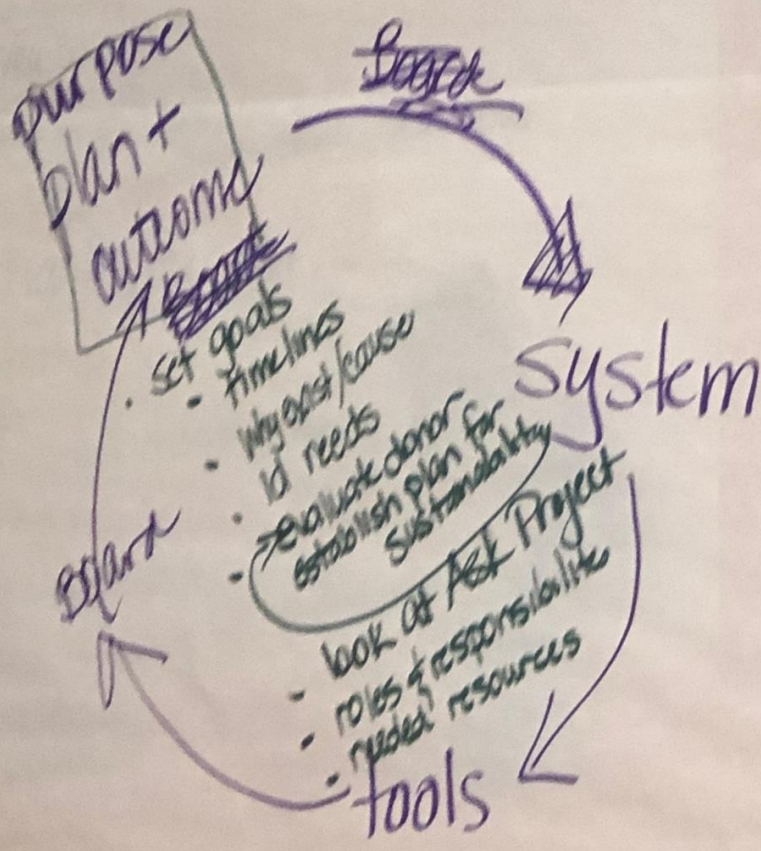 purpose
plan +
outcome
Board
System
• set goals
• timelines
• why exist/cause
• id needs
• evaluate donor
establish plan for
sustainability
- look at Ask Project
• roles & responsibilities
• needed resources
tools
Board